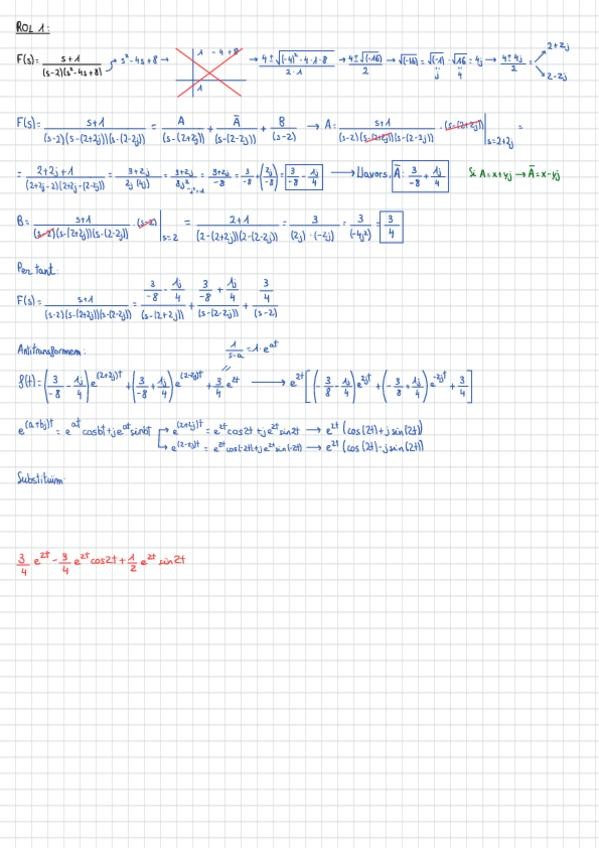 ROL 1:
F(s)= (s+1)/((s-2)(s²-4s+8)) → s²-4s+8 → 1 -4 +8 → (4±√((-4)²-4·1·8))/(2·1) → (4±√(-16))/2 → √(-16) = √(-1) · √16 = 4j → (4±4j)/2 = 2+2j
1 j 4 2-2j
F(s)= (s+1)/((s-2)(s-(2+2j))(s-(2-2j))) = A/(s-(2+2j)) + Ā/(s-(2-2j)) + B/(s-2) → A= (s+1)/((s-2)(s-(2+2j))(s-(2-2j))) · (s-(2+2j)) |s=2+2j =
= (2+2j+1)/((2+2j-2)(2+2j-(2-2j))) = (3+2j)/(2j(4j)) = (3+2j)/(8j²) = (3+2j)/-8 = 3/-8 + (2j/-8) = 3/-8 - 1j/4 → Llavors, Ā: 3/-8 + 1j/4 Si A=x+yj → Ā=x-yj
B= (s+1)/((s-2)(s-(2+2j))(s-(2-2j))) · (s-2) |s=2 = (2+1)/((2-(2+2j))(2-(2-2j))) = 3/((2j)·(-2j)) = 3/(-4j²) = 3/4
Per tant:
F(s)= (s+1)/((s-2)(s-(2+2j))(s-(2-2j))) = (3/-8 - 1j/4)/(s-(2+2j)) + (3/-8 + 1j/4)/(s-(2-2j)) + (3/4)/(s-2)
Antitransformem: 1/(s-a) = 1·e^at
f(t)= (3/-8 - 1j/4)e^(2+2j)t + (3/-8 + 1j/4)e^(2-2j)t + 3/4 e^2t → e^2t[(-3/8 - 1j/4)e^2jt + (-3/8 + 1j/4)e^-2jt + 3/4]
e^(a+bj)t = e^at cosbt+je^at sinbt → e^(2+2j)t = e^2t cos2t+je^2t sin2t → e^2t (cos(2t)+jsin(2t))
→ e^(2-2j)t = e^2t cos(-2t)+je^2t sin(-2t) → e^2t (cos(2t)-jsin(2t))
Substituim:
3/4 e^2t - 3/4 e^2t cos2t + 1/2 e^2t sin2t